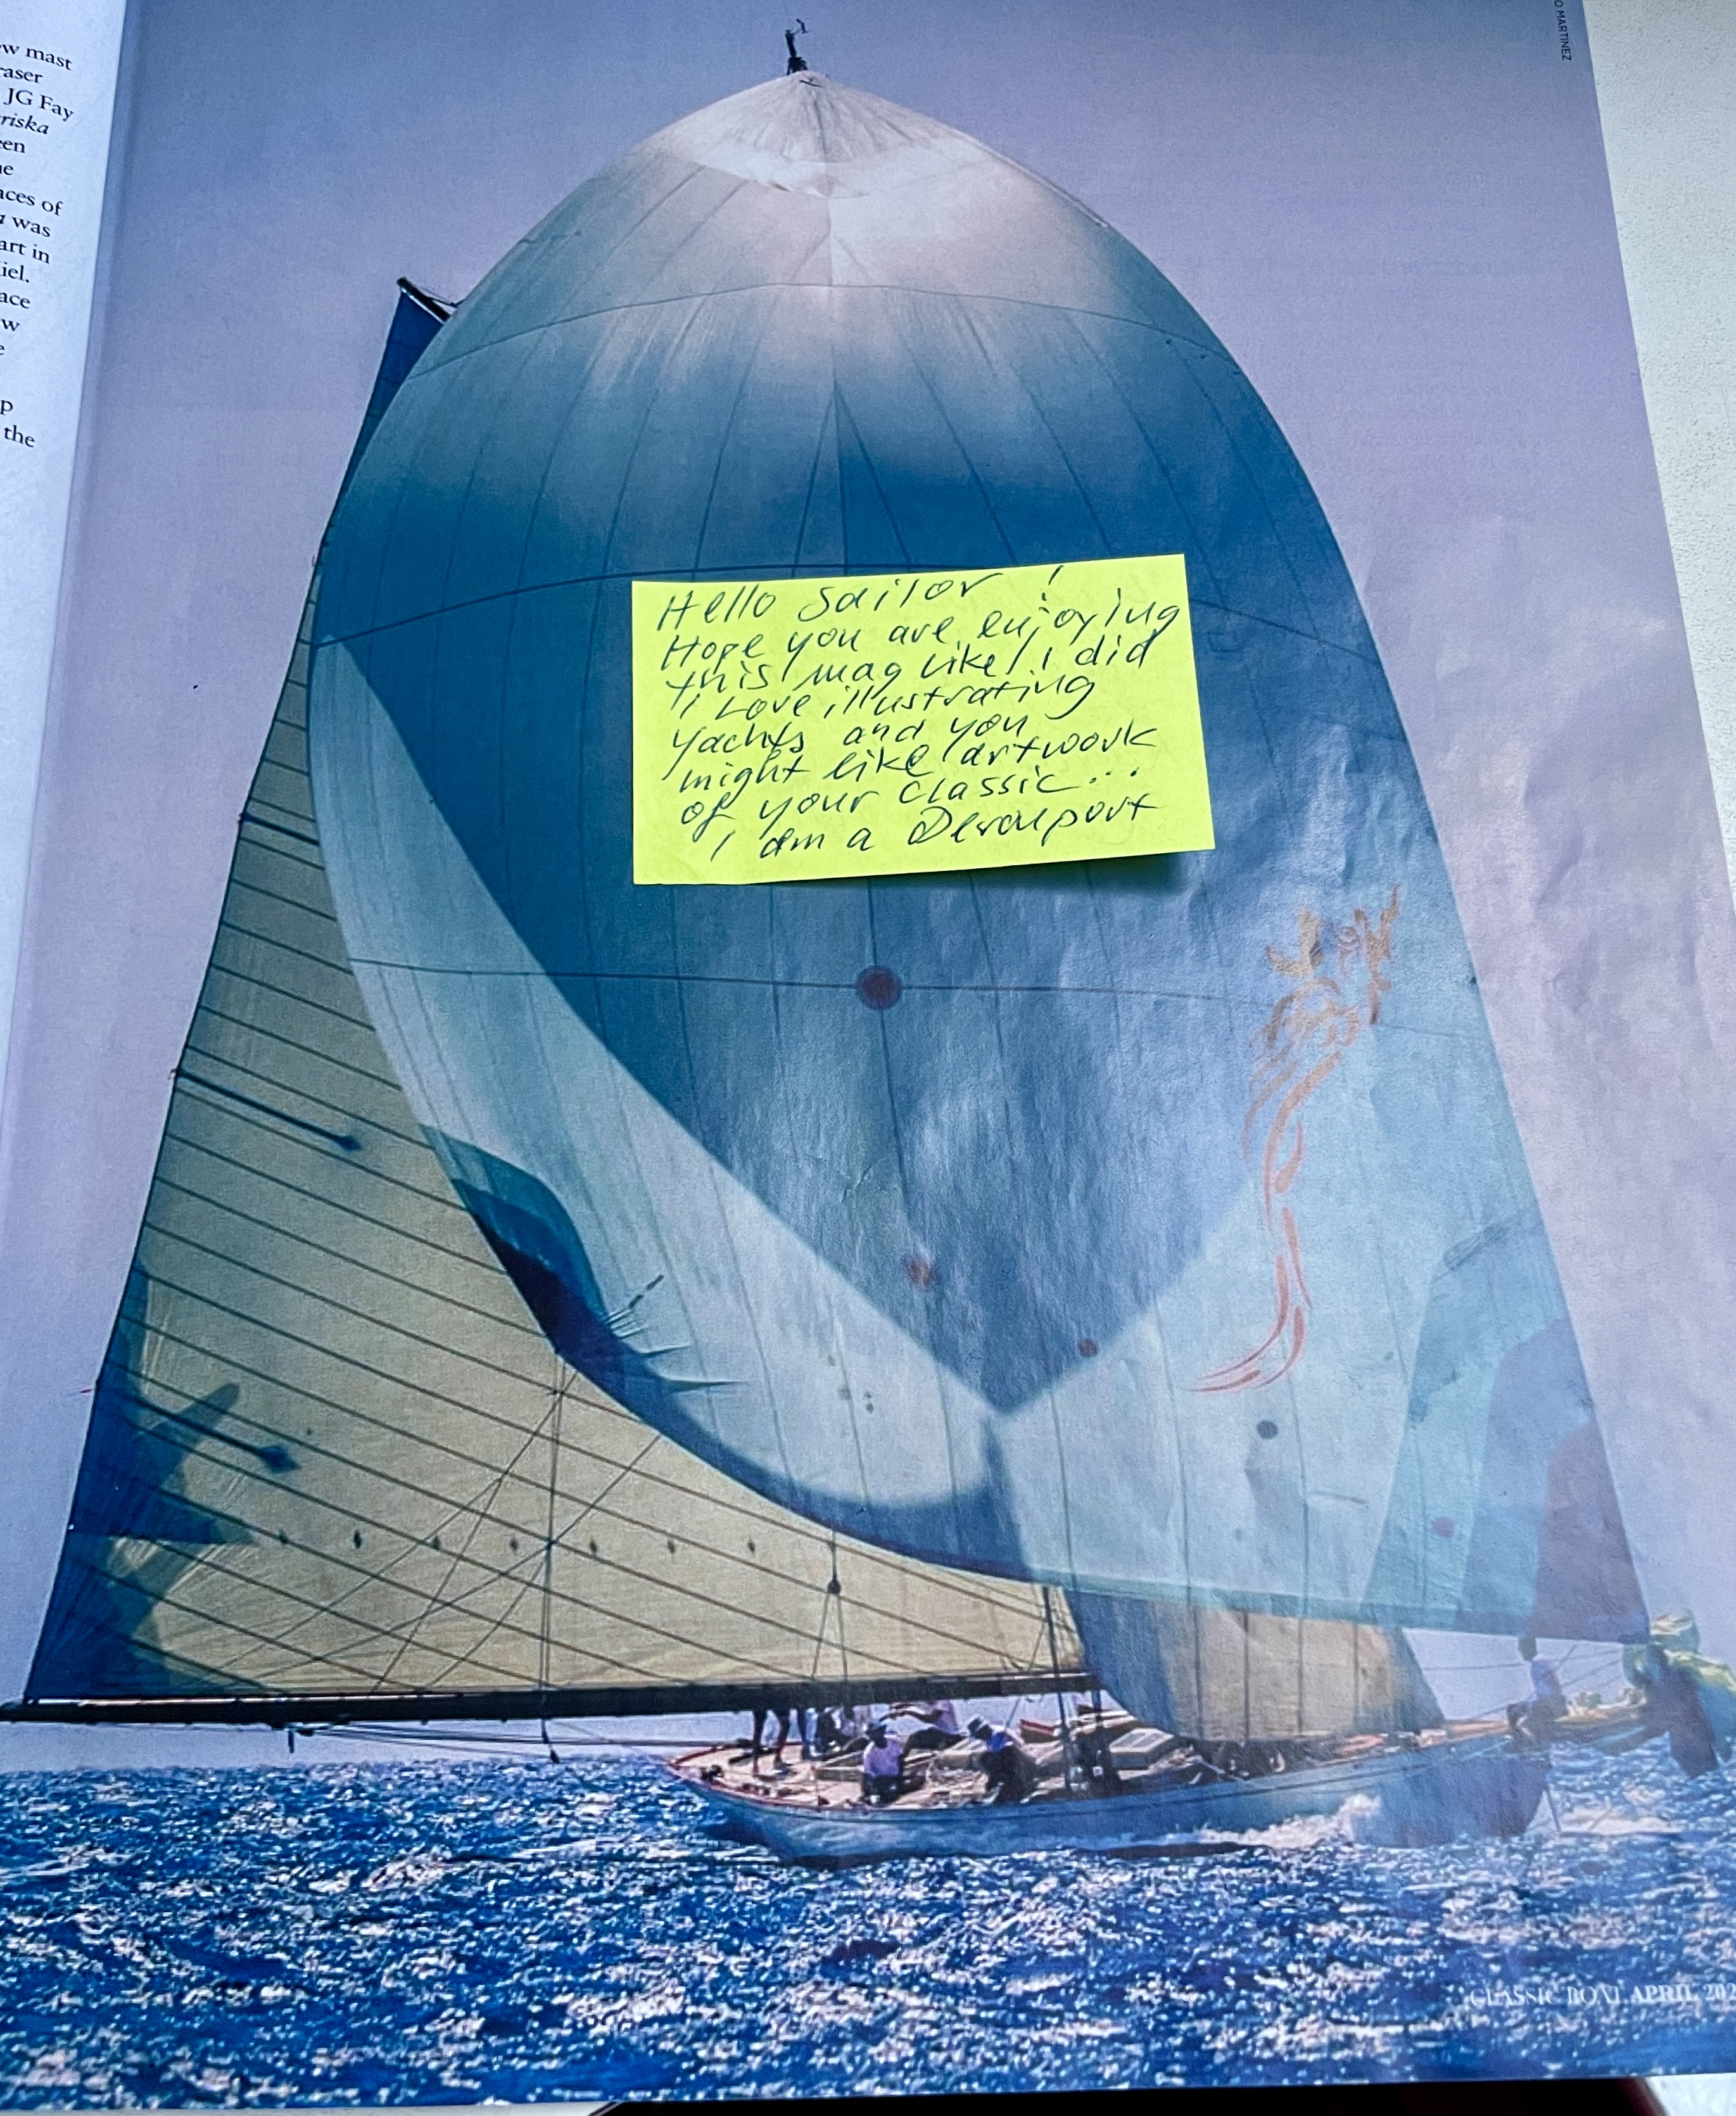 ew mast
raser
JG Fay
riska
een
ne
aces of
a was
art in
iel.
ace
w
e
p
the
O MARTINEZ
Hello Sailor !
Hope you are enjoying
this mag like I did
I Love illustrating
yachts and you
might like artwork
of your classic...
I am a Devonport
CLASSIC BOAT APRIL 20